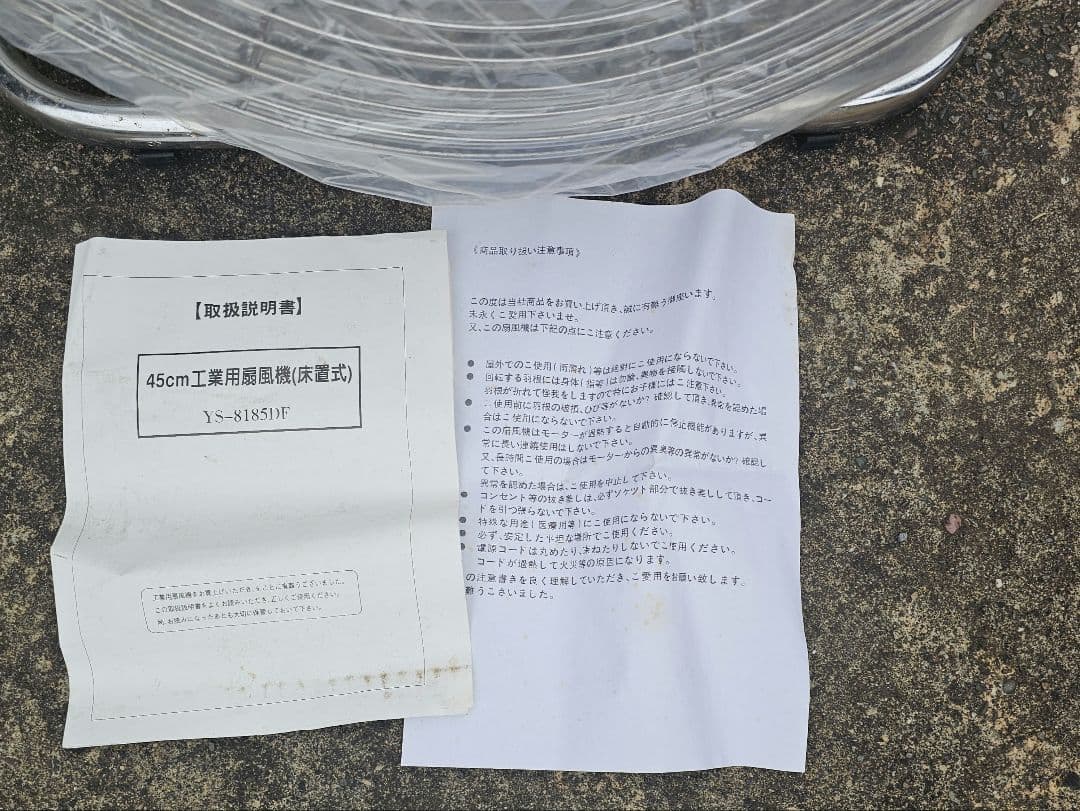 【取扱説明書】
45cm工業用扇風機(床置式)
YS-8185DF
工業用扇風機をお買上げいただき、まことに有難うございました。
この取扱説明書をよくお読みいただき、正しくご使用ください。
尚、お読みになったあとも大切に保管しておいて下さい。
《商品取り扱い注意事項》
この度は当社商品をお買い上げ頂き、誠に有難う御座います。
末永くご愛用下さいませ。
又、この扇風機は下記の点にご注意ください。
● 屋外でのご使用(雨濡れ)等は絶対にご使用にならないで下さい。
● 回転する羽根には身体(指等)は勿論、異物を接触しないで下さい。
羽根が折れて怪我をしますので特にお子様にはご注意下さい。
● ご使用前に羽根の破損、ひび等がないか?確認して頂き、異常を認めた場
合はご使用にならないで下さい。
● この扇風機はモーターが過熱すると自動的に停止機能がありますが、異
常に長い連続使用はしないで下さい。
又、長時間ご使用の場合はモーターからの異臭等の異常がないか?確認し
て下さい。
異常を認めた場合は、ご使用を中止して下さい。
● コンセント等の抜き差しは、必ずソケット部分で抜き差しして頂き、コー
ドを引つ張らないで下さい。
● 特殊な用途(医療用等)にご使用にならないで下さい。
● 必ず、安定した平坦な場所でご使用ください。
● 電源コードは丸めたり、束ねたりしないでご使用ください。
コードが過熱して火災等の原因になります。
の注意書きを良く理解していただき、ご愛用をお願い致します。
難うございました。